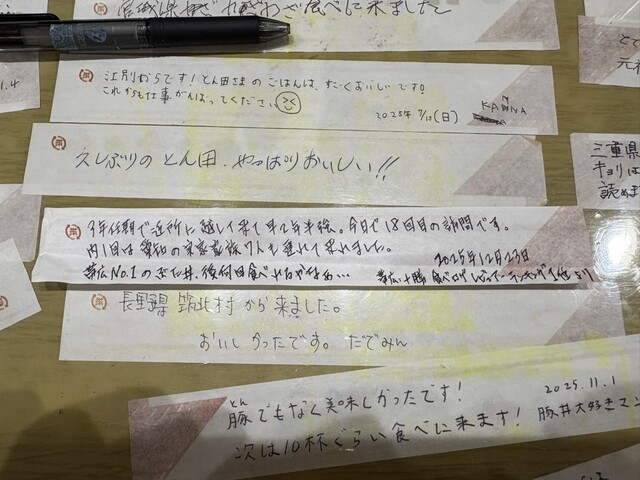 宮城県
わざわざ食べに来ました
とて
元
1.4
江別からです！とん田さまのごはんは、すごくおいしいです！
これからも仕事がんばってください
2025年 7/13(日)
KANNA
久しぶりのとん田、やっぱりおいしい!!
三重県
キョリは
読めま
3年任期で近所に越して来て早2年半強。今日で18回目の訪問です。
内1回は愛知の家族を連れて来れました。
帯広No.1のぶた丼、後何回食べれるかなぁ…
2025年12月23日
帯広十勝 食べログ レビュアーランキング1位より
長野県 筑北村から来ました。
おいしかったです。だでみん
とん
豚でもなく美味しかったです！
2025.11.1
次は10杯ぐらい食べに来ます！
豚丼大好きマン